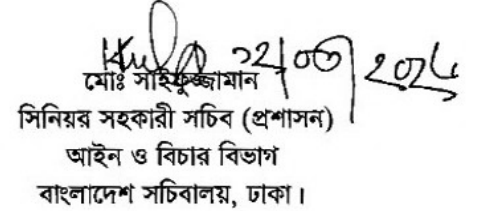 মোঃ সাইফুজ্জামান
সিনিয়র সহকারী সচিব (প্রশাসন)
আইন ও বিচার বিভাগ
বাংলাদেশ সচিবালয়, ঢাকা।